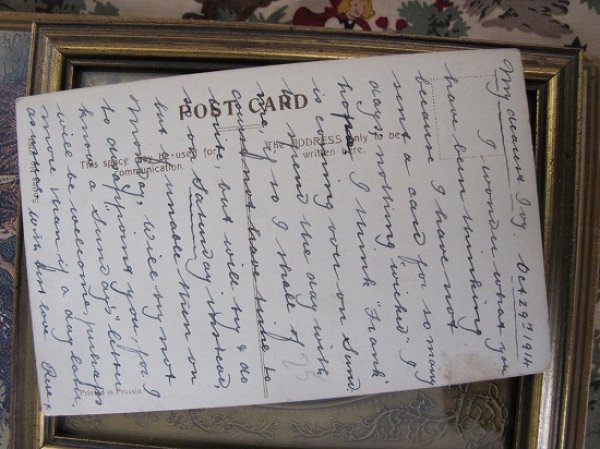 My dearest Ivy Oct 29th 1914
I wonder what you
have been thinking
because I have not
sent a card for so many
days, nothing wicked I
hope. I think "Frank"
is coming over on Sund
to spend the day with
me if so I shall of
course not have time to
write, but will try & do
so on Saturday instead
but if unable then on
Monday, will try not
to disappoint you, for I
know a "Sundays" letter
will be welcome, perhaps
more than if a day late.
with best love
POST CARD
This space may be used for
communication.
The ADDRESS only to be
written here.
Printed in Prussia